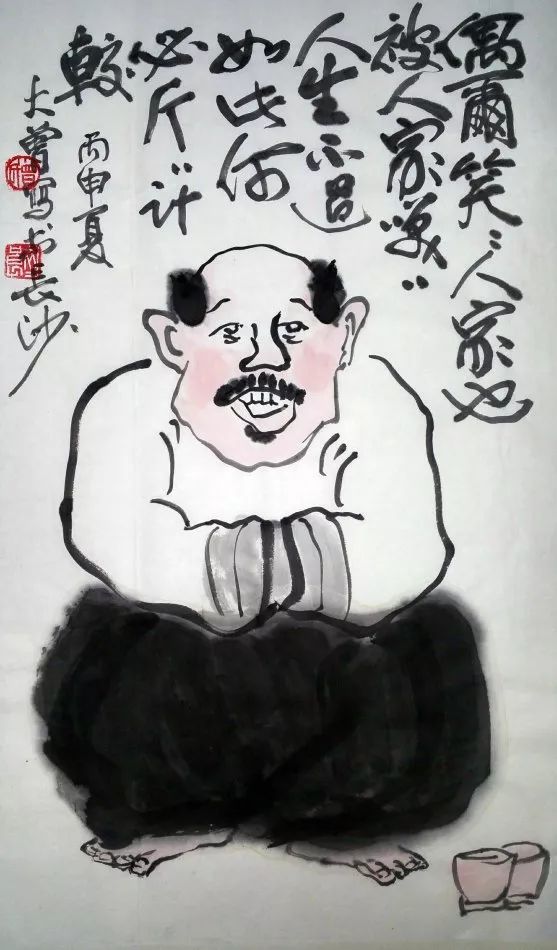 偶爾笑〃人家也
被人家咲〃
人生不過
如此何
必斤〃计
較
丙申夏
大曾寫於長沙